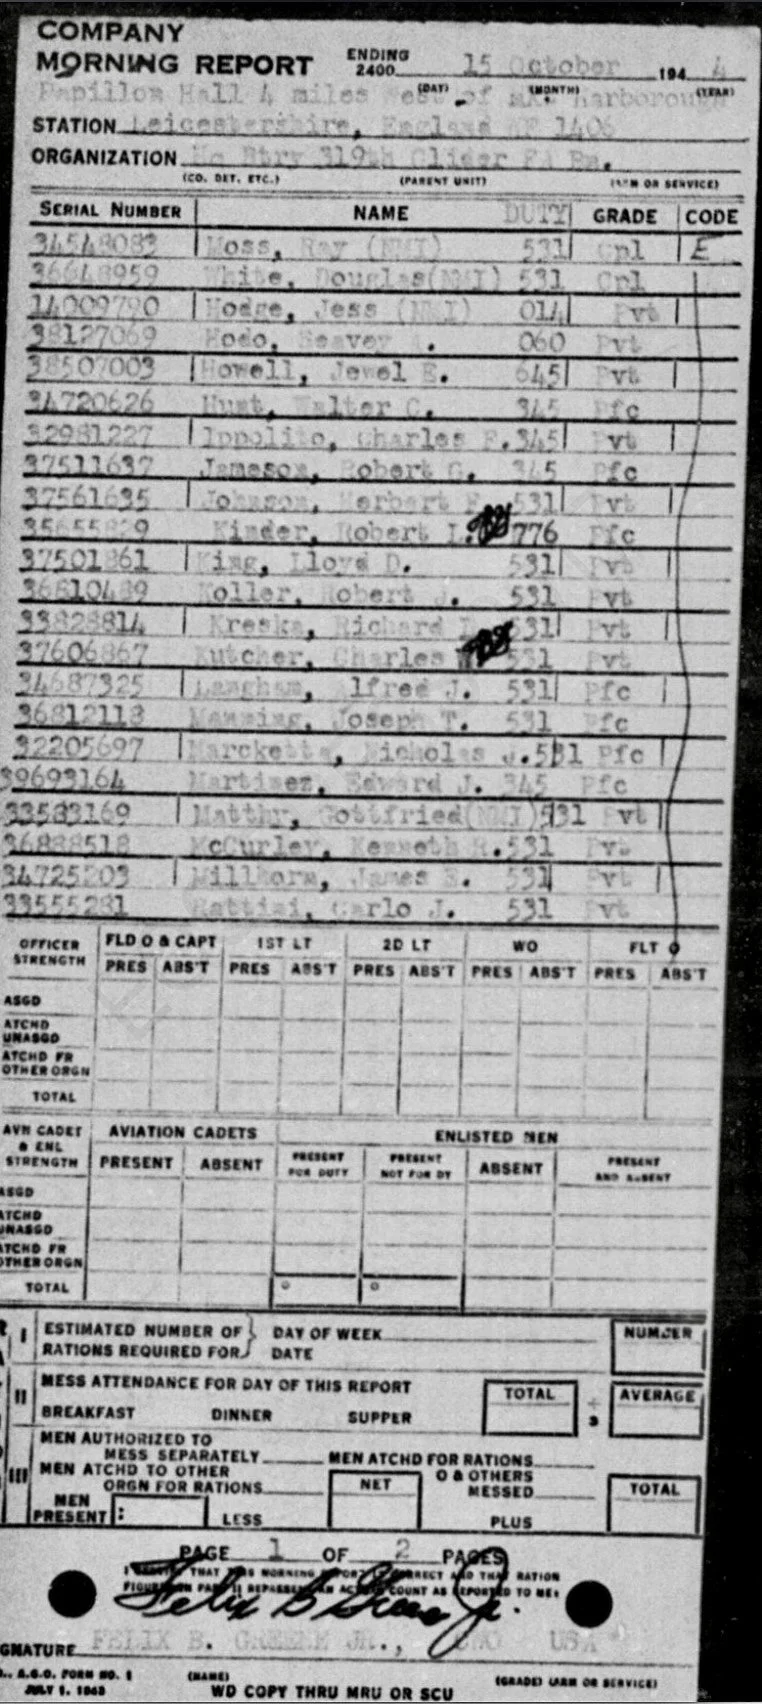 COMPANY
MORNING REPORT ENDING 2400 15 October 194 4
(DAY) (MONTH) (YEAR)
Papillon Hall 4 miles West of Harborough
STATION Leicestershire, England WF 1406
ORGANIZATION Hq Btry 319th Glider FA Bn.
(CO. DET. ETC.) (PARENT UNIT) (ARM OR SERVICE)
SERIAL NUMBER NAME DUTY GRADE CODE
34548083 Moss, Ray (NMI) 531 Cpl E
36648959 White, Douglas(NMI) 531 Cpl
14009790 Hodge, Jess (NMI) 014 Pvt
38127069 Hodo, Seavey A. 060 Pvt
38507003 Howell, Jewel E. 645 Pvt
34720626 Hunt, Walter C. 345 Pfc
32981227 Ippolito, Charles F. 345 Pvt
37511637 Jameson, Robert G. 345 Pfc
37561635 Johnson, Herbert 531 Pvt
Kinder, Robert L. 776 Pfc
37501861 King, Lloyd D. 531 Pvt
36810489 Koller, Robert J. 531 Pvt
33828814 Kreska, Richard 531 Pvt
37606867 Kutcher, Charles 531 Pvt
34687325 Langham, Alfred J. 531 Pfc
36812118 Manning, Joseph T. 531 Pfc
32205697 Marcketta, Nicholas J. 531 Pfc
39693164 Martinez, Edward J. 345 Pfc
33583169 Matthy, Gottfried(NMI) 531 Pvt
36888518 McCurley, Kenneth R. 531 Pvt
34725203 Millhorn, James E. 531 Pvt
33555281 Rattini, Carlo J. 531 Pvt
OFFICER STRENGTH FLD O & CAPT 1ST LT 2D LT WO FLT O
PRES ABS'T PRES ABS'T PRES ABS'T PRES ABS'T PRES ABS'T
ASGD
ATCHD UNASGD
ATCHD FR OTHER ORGN
TOTAL
AVN CADET & ENL STRENGTH AVIATION CADETS ENLISTED MEN
PRESENT ABSENT PRESENT FOR DUTY PRESENT NOT FOR DY ABSENT PRESENT AND ABSENT
ASGD
ATCHD UNASGD
ATCHD FR OTHER ORGN
TOTAL
I ESTIMATED NUMBER OF DAY OF WEEK NUMBER
RATIONS REQUIRED FOR DATE
II MESS ATTENDANCE FOR DAY OF THIS REPORT TOTAL ÷ 3 AVERAGE
BREAKFAST DINNER SUPPER
MEN AUTHORIZED TO
MESS SEPARATELY MEN ATCHD FOR RATIONS
III MEN ATCHD TO OTHER O & OTHERS
ORGN FOR RATIONS NET MESSED TOTAL
MEN PRESENT : LESS PLUS
PAGE 1 OF 2 PAGES
I CERTIFY THAT THIS MORNING REPORT IS CORRECT AND THAT RATION
FIGURES IN PART II REPRESENT AN ACTUAL COUNT AS REPORTED TO ME:
Felix B Greene Jr.
SIGNATURE FELIX B. GREENE JR., CWO USA
(NAME) (GRADE) (ARM OR SERVICE)
A.G.O. FORM NO. 1
JULY 1, 1943 WD COPY THRU MRU OR SCU